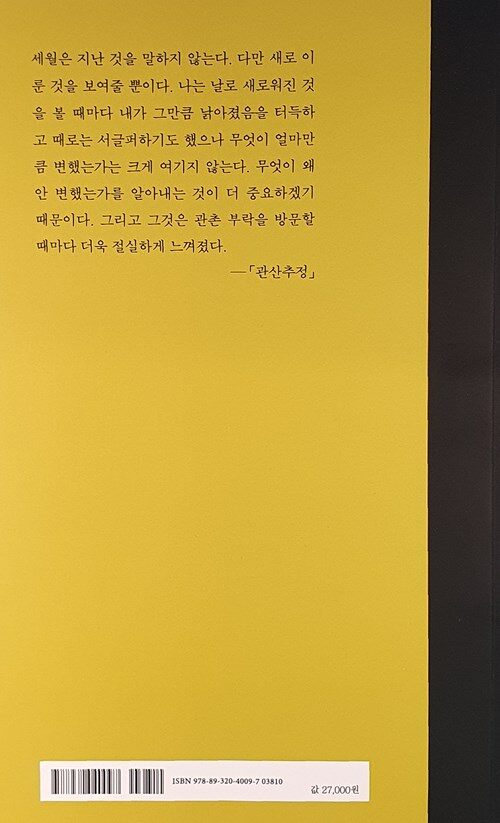 세월은 지난 것을 말하지 않는다. 다만 새로 이
룬 것을 보여줄 뿐이다. 나는 날로 새로워진 것
을 볼 때마다 내가 그만큼 낡아졌음을 터득하
고 때로는 서글퍼하기도 했으나 무엇이 얼마만
큼 변했는가는 크게 여기지 않는다. 무엇이 왜
안 변했는가를 알아내는 것이 더 중요하겠기
때문이다. 그리고 그것은 관촌 부락을 방문할
때마다 더욱 절실하게 느껴졌다.
—「관산추정」
ISBN 978-89-320-4009-7 03810
값 27,000원